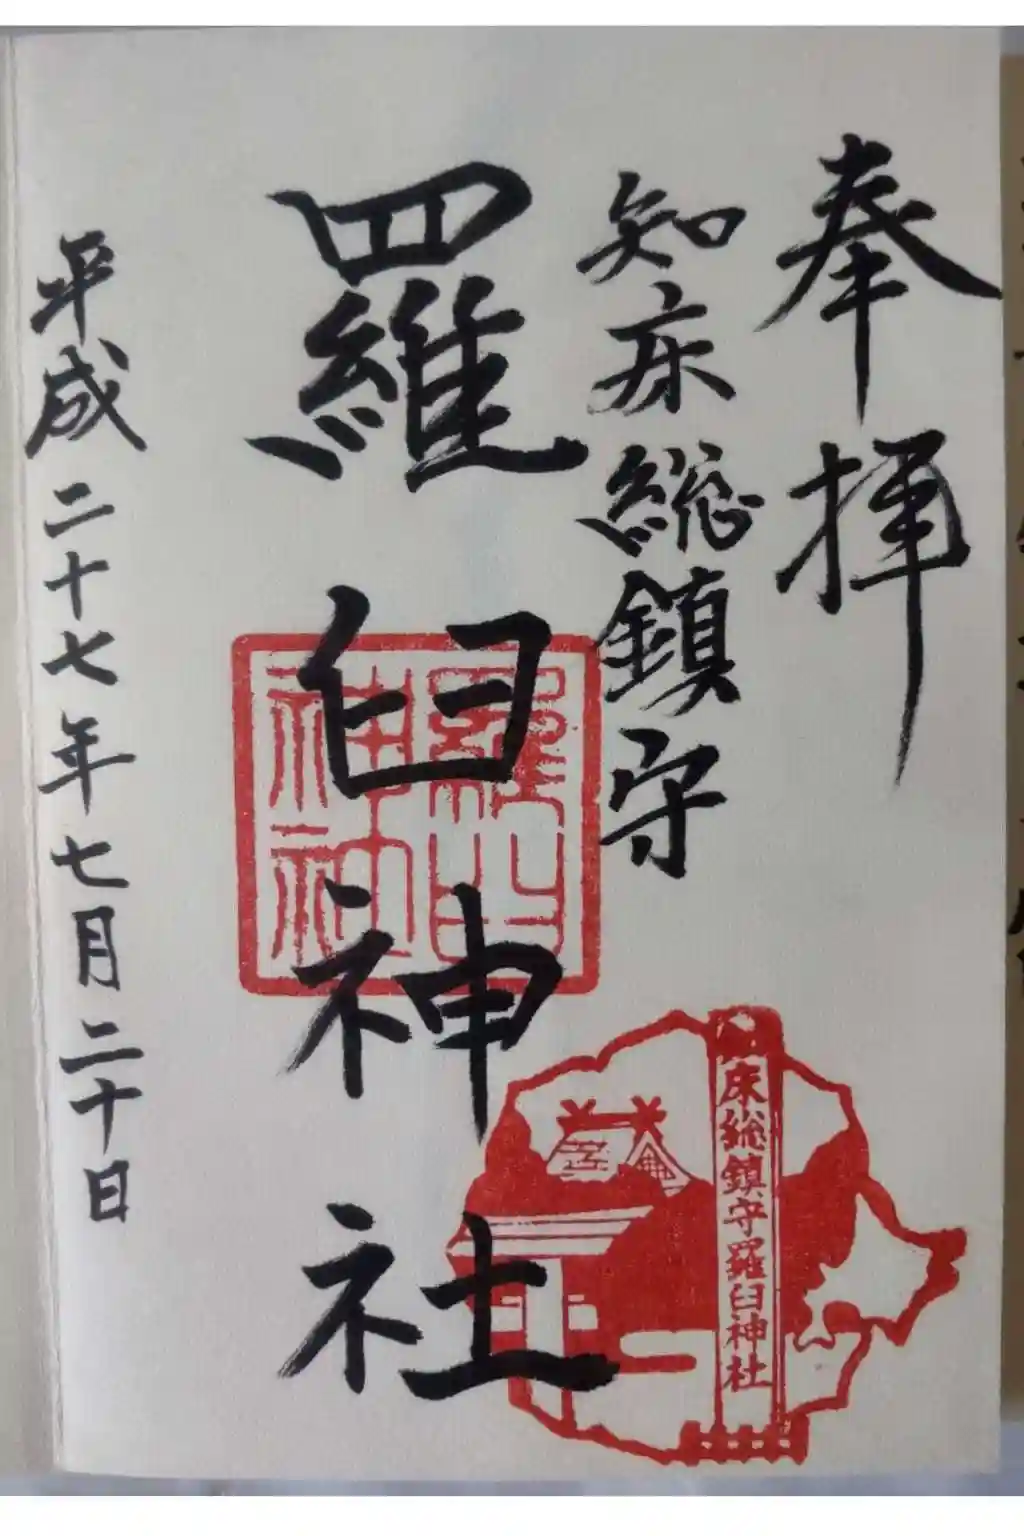 奉拝
知床総鎮守
羅臼神社
平成二十七年七月二十日
羅臼
神社
床総鎮守羅臼神社